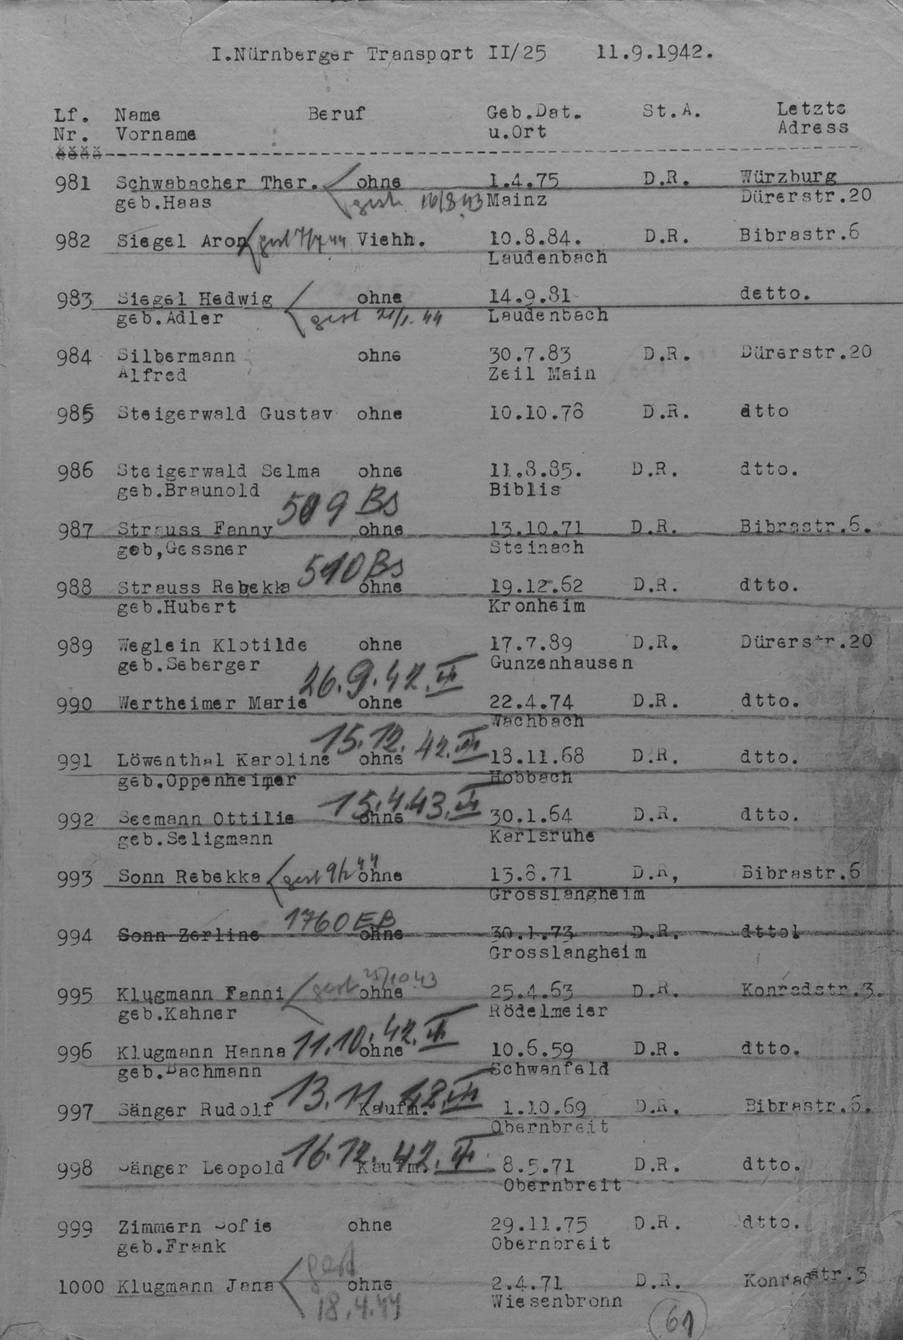 I.Nürnberger Transport II/25 11.9.1942.
Lf. Name Beruf Geb.Dat. St.A. Letzte
Nr. Vorname u.Ort Adress
981 Schwabacher Ther. ohne 1.4.75 D.R. Würzburg
geb.Haas gest 16/3 43 Mainz Dürerstr.20
982 Siegel Aron gest 7/4 44 Viehh. 10.8.84. D.R. Bibrastr.6
Laudenbach
983 Siegel Hedwig ohne 14.9.81 detto.
geb.Adler gest 21/1. 44 Laudenbach
984 Silbermann ohne 30.7.83 D.R. Dürerstr.20
Alfred Zeil Main
985 Steigerwald Gustav ohne 10.10.78 D.R. dtto
986 Steigerwald Selma ohne 11.8.85. D.R. dtto.
geb.Braunold Biblis
509 Bs
987 Strauss Fanny ohne 13.10.71 D.R. Bibrastr.6.
geb,Gessner Steinach
510 Bs
988 Strauss Rebekka ohne 19.12.62 D.R. dtto.
geb.Hubert Kronheim
989 Weglein Klotilde ohne 17.7.89 D.R. Dürerstr.20
geb.Seberger Gunzenhausen
26.9.42.
990 Wertheimer Marie ohne 22.4.74 D.R. dtto.
Wachbach
15.12. 42.
991 Löwenthal Karoline ohne 18.11.68 D.R. dtto.
geb.Oppenheimer Hobbach
15.4.43.
992 Seemann Ottilie ohne 30.1.64 D.R. dtto.
geb.Seligmann Karlsruhe
993 Sonn Rebekka gest 9/2 44 ohne 13.8.71 D.R, Bibrastr.6
Grosslangheim
1760 EB
994 Sonn Zerline ohne 30.1.73 D.R. dtto
Grosslangheim
995 Klugmann Fanni gest 25/10.43 ohne 25.4.63 D.R. Konradstr.3.
geb.Kahner Rödelmeier
996 Klugmann Hanna 11.10. 42. ohne 10.6.59 D.R. dtto.
geb.Bachmann Schwanfeld
997 Sänger Rudolf 13.11. 42 Kaufm. 1.10.69 D.R. Bibrastr.6.
Obernbreit
998 Sänger Leopold 16.12. 42. Kaufm. 8.5.71 D.R. dtto.
Obernbreit
999 Zimmern Sofie ohne 29.11.75 D.R. dtto.
geb.Frank Obernbreit
gest
1000 Klugmann Jana ohne 2.4.71 D.R. Konradstr.3
18.4.44 Wiesenbronn
61